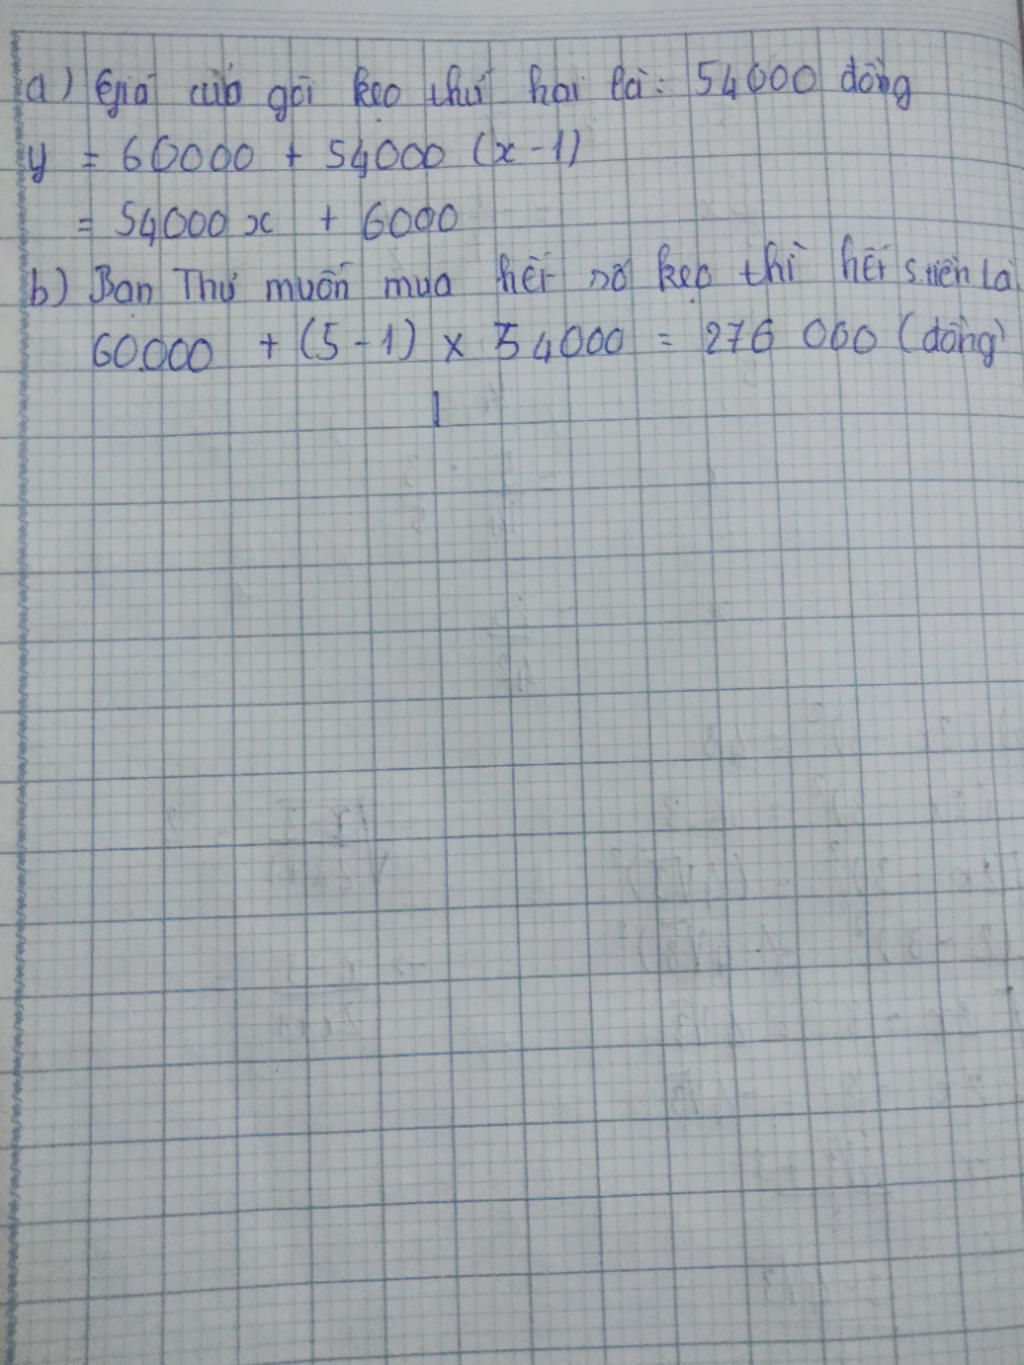 a) Giá của gói kẹo thứ hai là: 54000 đồng
y = 60000 + 54000 (x - 1)
= 54000 x + 6000
b) Bạn Thư muốn mua hết số kẹo thì hết s.tiền là
60.000 + (5 - 1) × 54000 = 276 000 (đồng)